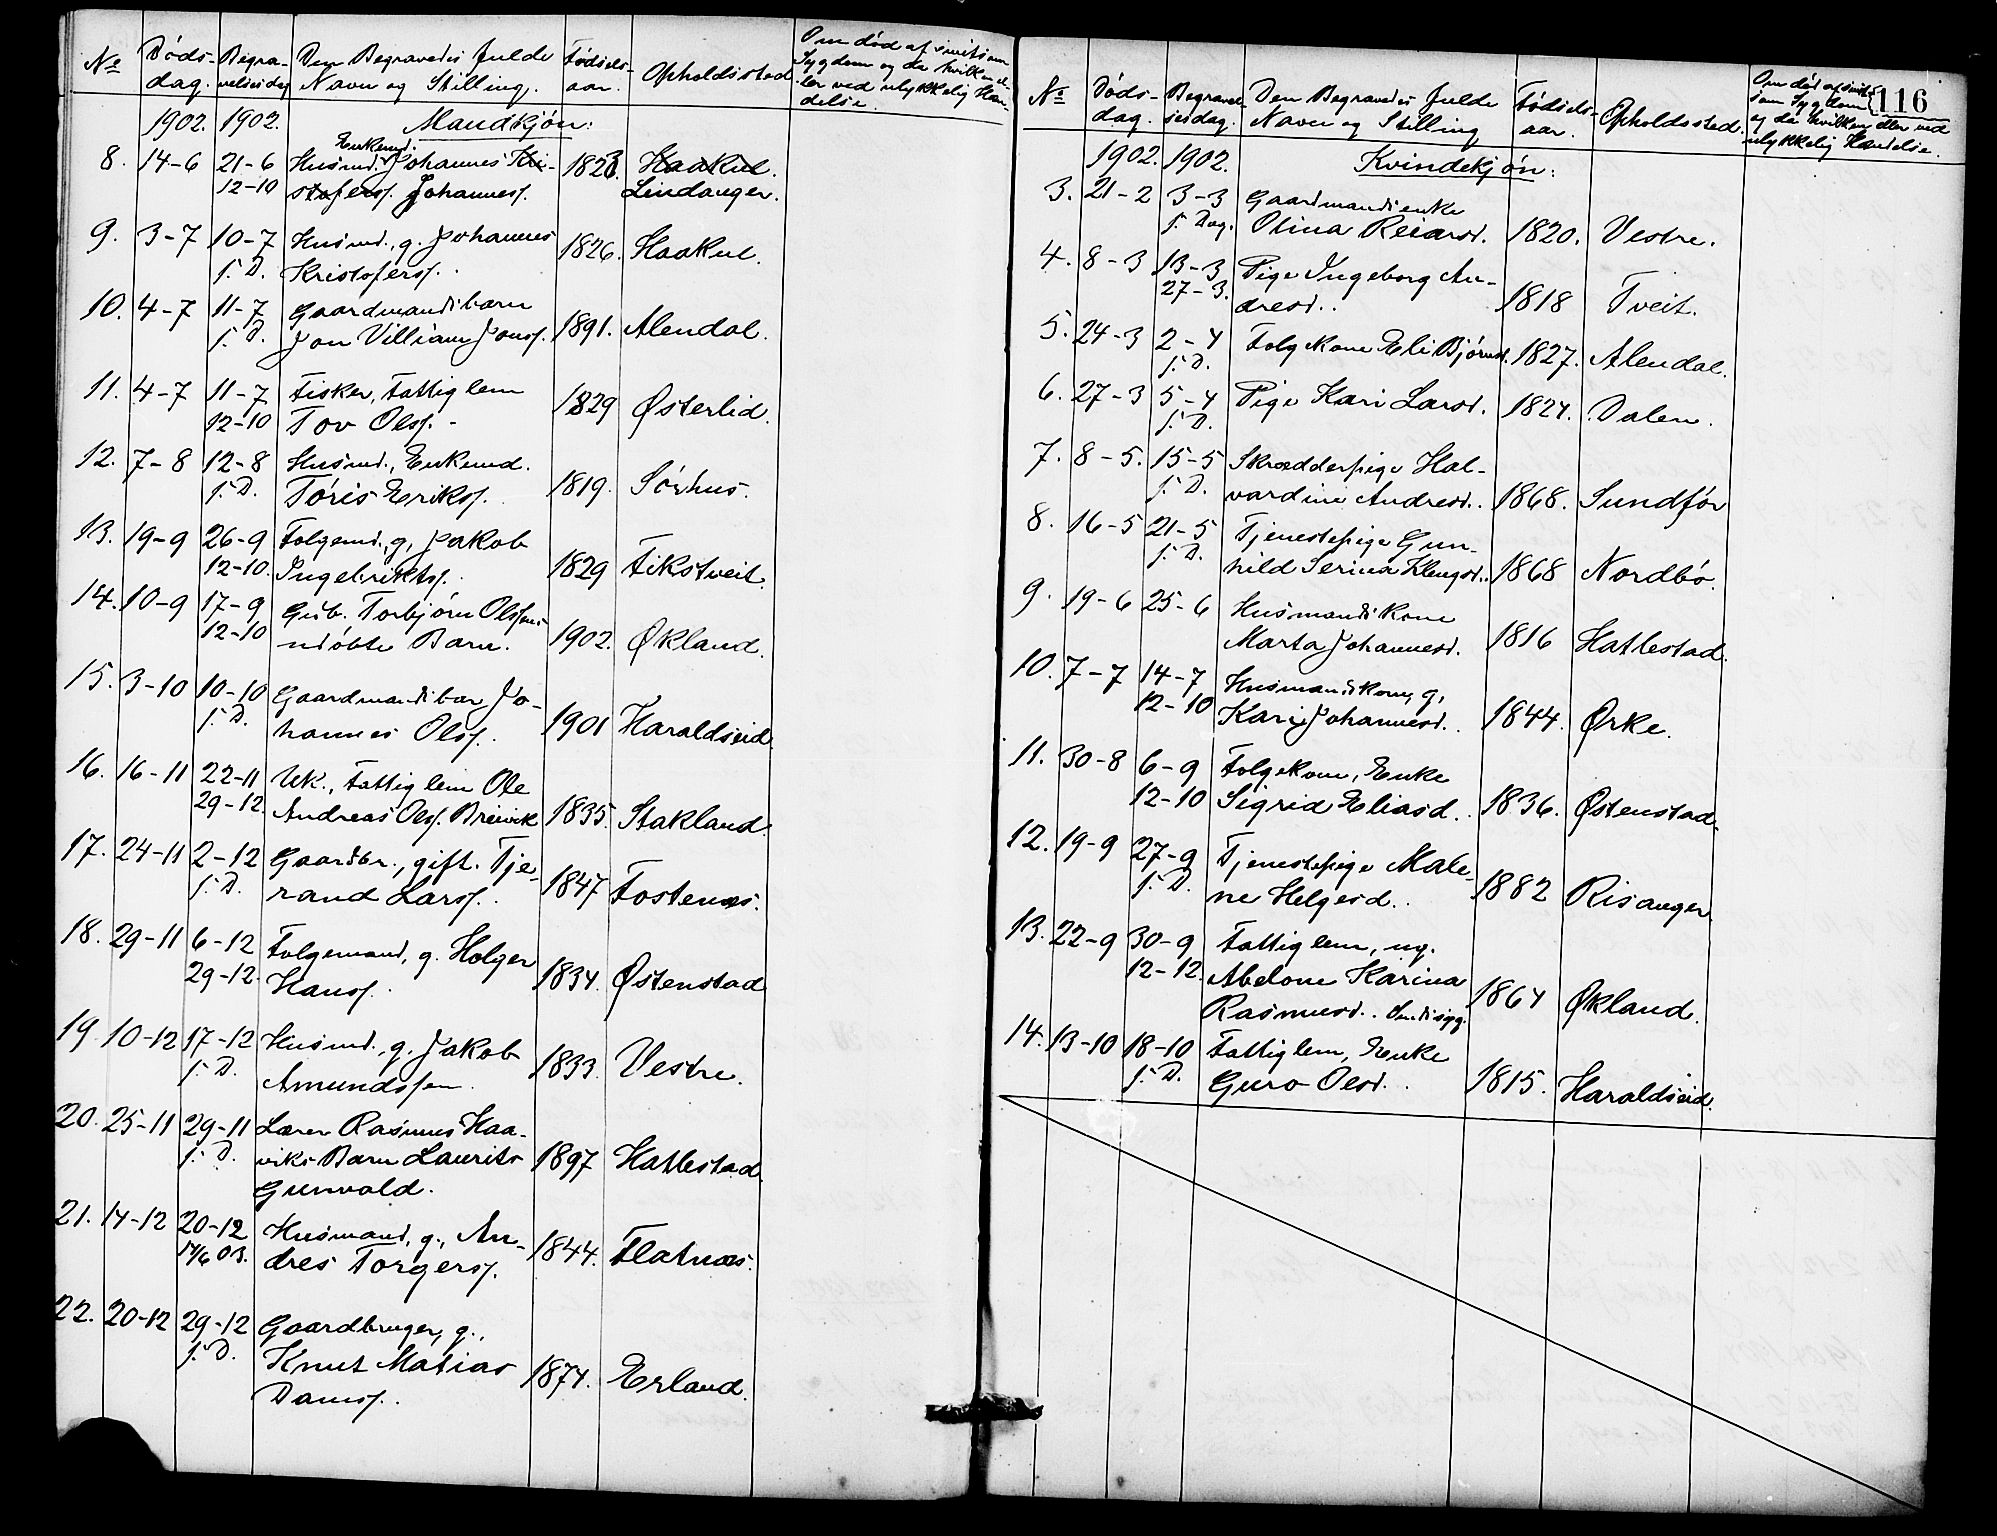 No Døds- Begra- Den Begravedes fulde Fødsels- Opholdssted Om død af smitsom
dag. velsesdag Navn og Stilling. aar. Sygdom og da hvilken el-
ler ved ulykkelig Hæn-
delse.
1902. 1902. Mandkjøn:
Enkemd.
8. 14-6 21-6 Husmd. Johannes Kri- 1823. Haakul.
12-10 stofers. Johanness. Lindanger.
9. 3-7 10-7 Husmd., g. Johannes 1826. Haakul.
s. D. Kristofers.
10. 4-7 11-7 Gaardmandsbarn
s. D. Jon Villiam Jonss. 1891. Alendal.
11. 4-7 11-7 Fisker, Fattiglem 1829 Østerlid.
12-10 Tov Olss.
12. 7-8 12-8 Husmd., Enkemd.
s. D. Tøris Erikss. 1819. Sørhus.
13. 19-9 26-9 Folgemd., g. Jakob
12-10. Ingebriktss. 1829 Fikstveit.
14. 10-9 17-9 Gub. Torbjørn Olssens
12-10 udøbte Barn. 1902. Økland.
15. 3-10 10-10 Gaardmandsbar Jo-
s. D. hannes Olss. 1901 Haraldseid.
16. 16-11 22-11 Uk., Fattiglem Ole
29-12. Andreas Olss. Breivik 1835. Stakland.
17. 24-11 2-12 Gaardbr., gift. Tje-
s. D. rand Larss. 1847 Fostenæs.
18. 29-11 6-12 Folgemand, g. Holger
29-12. Hanss. 1834. Østenstad
19. 10-12 17-12 Husmd., g. Jakob
s. D. Amundssen. 1833. Vestre.
20. 25-11 29-11 Lærer Rasmus Haa-
s. D. viks Barn Laurits 1897 Hatlestad.
Gunvald.
21. 14-12 20-12 Husmand, g., An-
14/6 03. dres Torgerss. 1844. Flatnæs.
22. 20-12 29-12 Gaardbruger, g.,
s. D. Knut Matias 1874. Erland.
Danss.
116
No Døds- Begravel- Den Begravedes fulde Fødsels- Opholdssted. Om død af smit-
dag. sesdag. Navn og Stilling aar. som Sygdom
og da hvilken eller ved
ulykkelig Hændelse.
1902. 1902. Kvindekjøn:
3. 21-2 3-3 Gaardmandsenke
s. Dag. Olina Reiarsd. 1820. Vestre.
4. 8-3 13-3 Pige Ingeborg An-
27-3. dresd. 1818 Tveit.
5. 24-3 2-4 Folgekone Eli Bjørnsd. 1827. Alendal.
s. D.
6. 27-3 5-4 Pige Kari Larsd. 1824. Dalen.
s. D.
7. 8-5. 15-5 Skrædderpige Hal-
s. D. vardine Andresd. 1868. Sundfør
8. 16-5 21-5 Tjenestepige Gun-
s. D. hild Serina Klengsd. 1868 Nordbø.
9. 19-6 25-6 Husmandskone
Marta Johannesd. 1816 Hatlestad.
10. 7-7 14-7 Husmandskone, g,
12-10 Kari Johannesd. 1844. Ørke.
11. 30-8 6-9 Folgekone, Enke
12-10 Sigrid Eliasd. 1836. Østenstad.
12. 19-9 27-9 Tjenestepige Male-
s. D. ne Helgesd. 1882 Risanger
13. 22-9 30-9 Fattiglem, ug.
12-12. Abelone Karina
Rasmusd. Sindssyg. 1864 Økland.
14. 13-10 18-10 Fattiglem, Enke
s. D. Guro Olsd. 1815. Haraldseid.